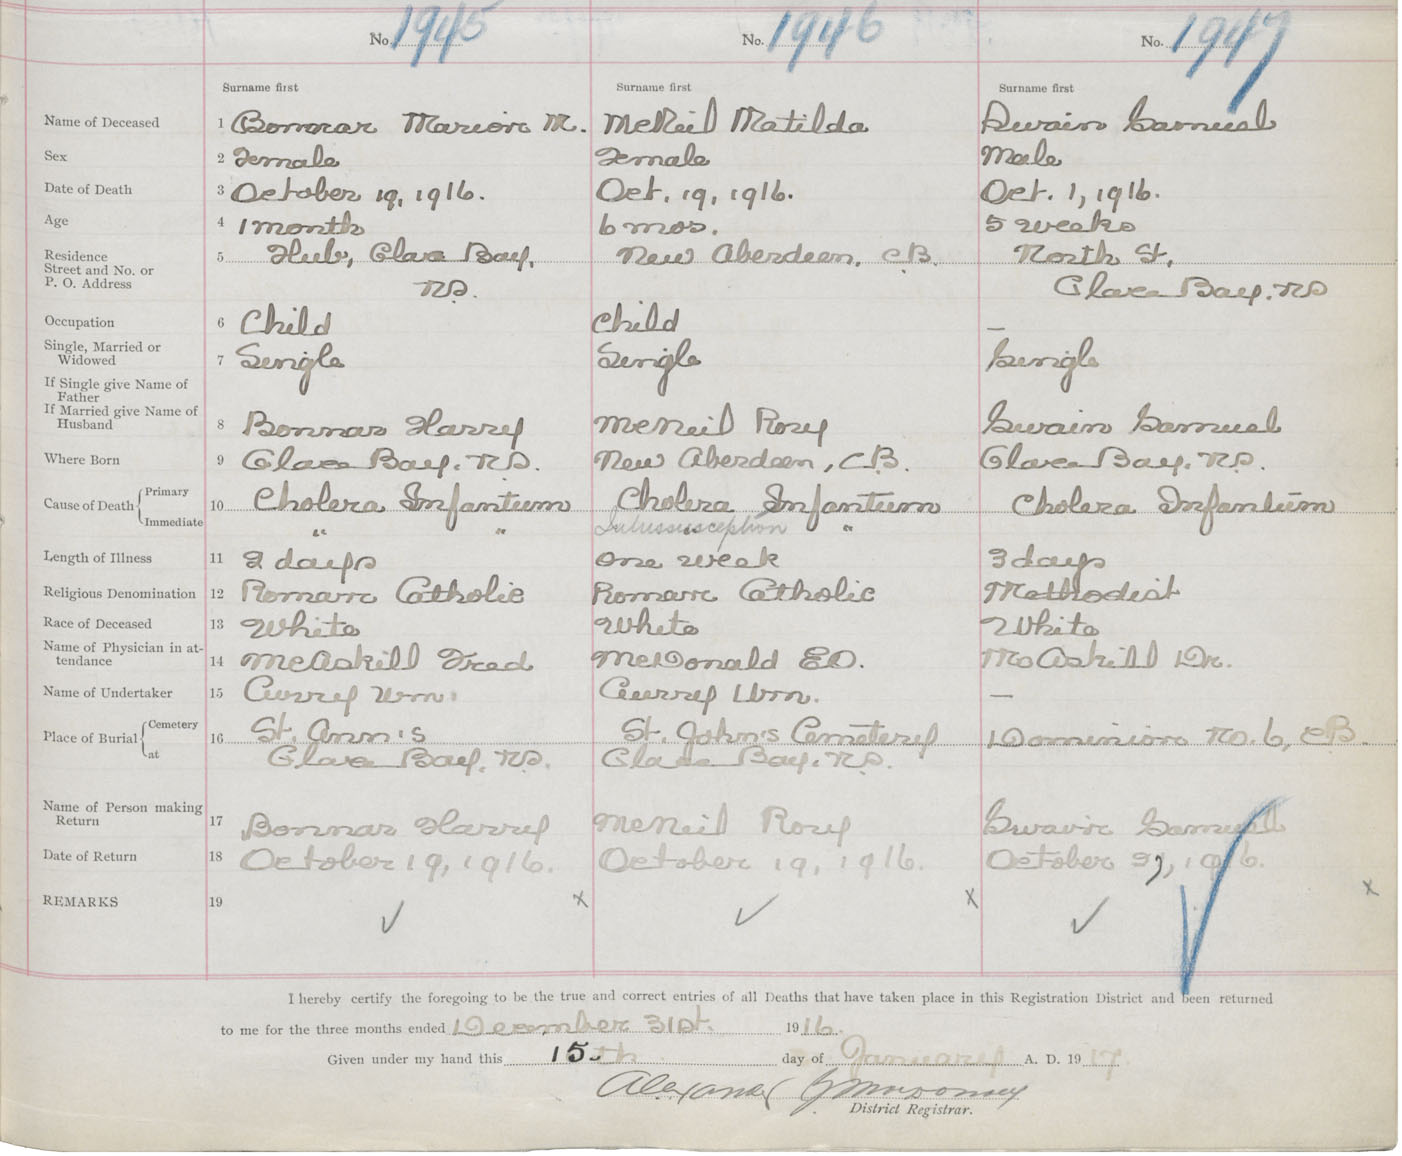 No. 1945 No. 1946 No. 1947
Surname first Surname first Surname first
Name of Deceased 1 Bonnar Marion M. McNeil Matilda Swain Samuel
Sex 2 Female Female Male
Date of Death 3 October 19, 1916. Oct. 19, 1916. Oct. 1, 1916.
Age 4 1 month 6 mos. 5 weeks
Residence 5 Hub, Glace Bay, New Aberdeen, C.B. North St,
Street and No. or
P. O. Address N.S. Glace Bay. N.S
Occupation 6 Child Child —
Single, Married or
Widowed 7 Single Single Single
If Single give Name of
Father
If Married give Name of
Husband 8 Bonnar Harry McNeil Rory Swain Samuel
Where Born 9 Glace Bay. N.S. New Aberdeen, C.B. Glace Bay. N.S.
Cause of Death { Primary 10 Cholera Infantum Cholera Infantum Cholera Infantum
Immediate " " Intussusception "
Length of Illness 11 2 days one week 3 days
Religious Denomination 12 Roman Catholic Roman Catholic Methodist
Race of Deceased 13 White White White
Name of Physician in at-
tendance 14 McAskill Fred McDonald E.O. McAskill Dr.
Name of Undertaker 15 Currey Wm. Currey Wm. —
Place of Burial { Cemetery 16 St. Ann's St. John's Cemetery Dominion No. 6, C.B.
at Glace Bay. N.S. Glace Bay. N.S.
Name of Person making
Return 17 Bonnar Harry McNeil Rory Swain Samuel
Date of Return 18 October 19, 1916. October 19, 1916. October 1916.
REMARKS 19 x x x
I hereby certify the foregoing to be the true and correct entries of all Deaths that have taken place in this Registration District and been returned
to me for the three months ended December 31st. 1916.
Given under my hand this 15th day of January A. D. 1917.
Alexander
District Registrar.